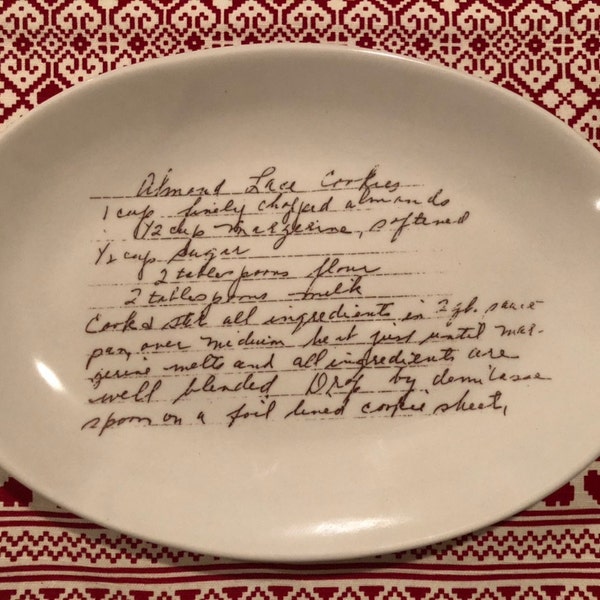 Almond Lace Cookies
1 cup finely chopped almonds
1/2 cup margerine, softened
1/2 cup sugar
2 tablespoons flour
2 tablespoons milk
Cook & stir all ingredients in 2 qt. sauce
pan, over medium heat just until mar-
gerine melts and all ingredients are
well blended Drop by demitasse
spoon on a foil lined cookie sheet,